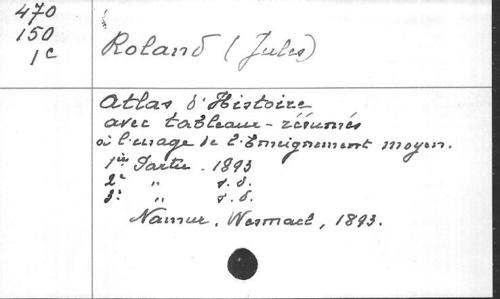 470
150
1c
Roland (Jules)
Atlas d'Histoire
avec tableaux-résumés
à l'usage de l'Enseignement moyen.
1ière Partie. 1893
2e " s.d.
3e " s.d.
Namur, Wesmael, 1893.